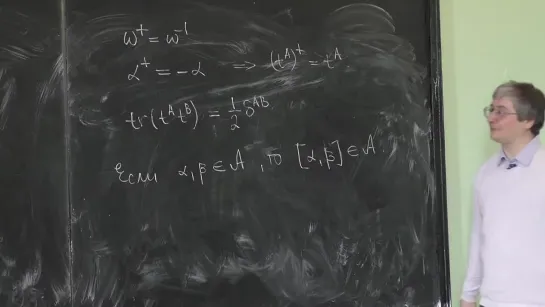 ω⁺ = ω⁻¹
α⁺ = −α ⇒ (t^A)⁺ = t^A
tr(t^A t^B) = 1/2 δ^AB
Если α, β ∈ A, то [α, β] ∈ A.